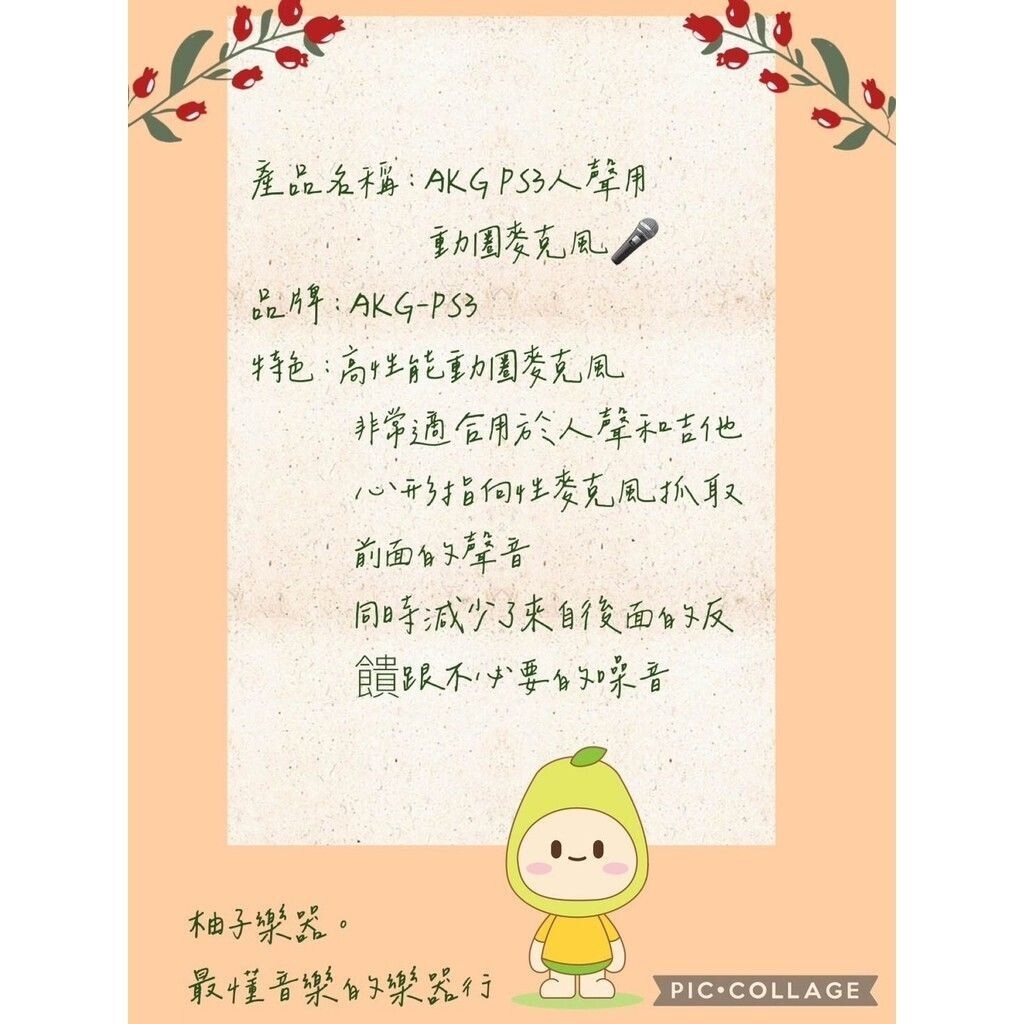 產品名稱：AKG PS3人聲用
動圈麥克風
品牌：AKG-PS3
特色：高性能動圈麥克風
非常適合用於人聲和吉他
心形指向性麥克風抓取
前面的聲音
同時減少了來自後面的反
饋跟不必要的噪音
柚子樂器。
最懂音樂的樂器行
PIC•COLLAGE